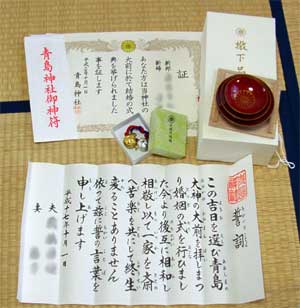 証
新郎
新婦
あなた方は当神社の
大前に於て結婚の式
典を挙げられました
事を証します
平成十七年十月一日
青島神社
青島神社御神符
撤下品
誓詞
この吉日を選び青島
大神の大前を拝しまつ
り婚姻の式を行ひまし
た今より後互に相和し
相敬し以て一家を斎
へ苦楽を共にして終生
変ることありません
依って茲に誓の言葉を
申し上げます
平成十七年十月一日
夫
妻